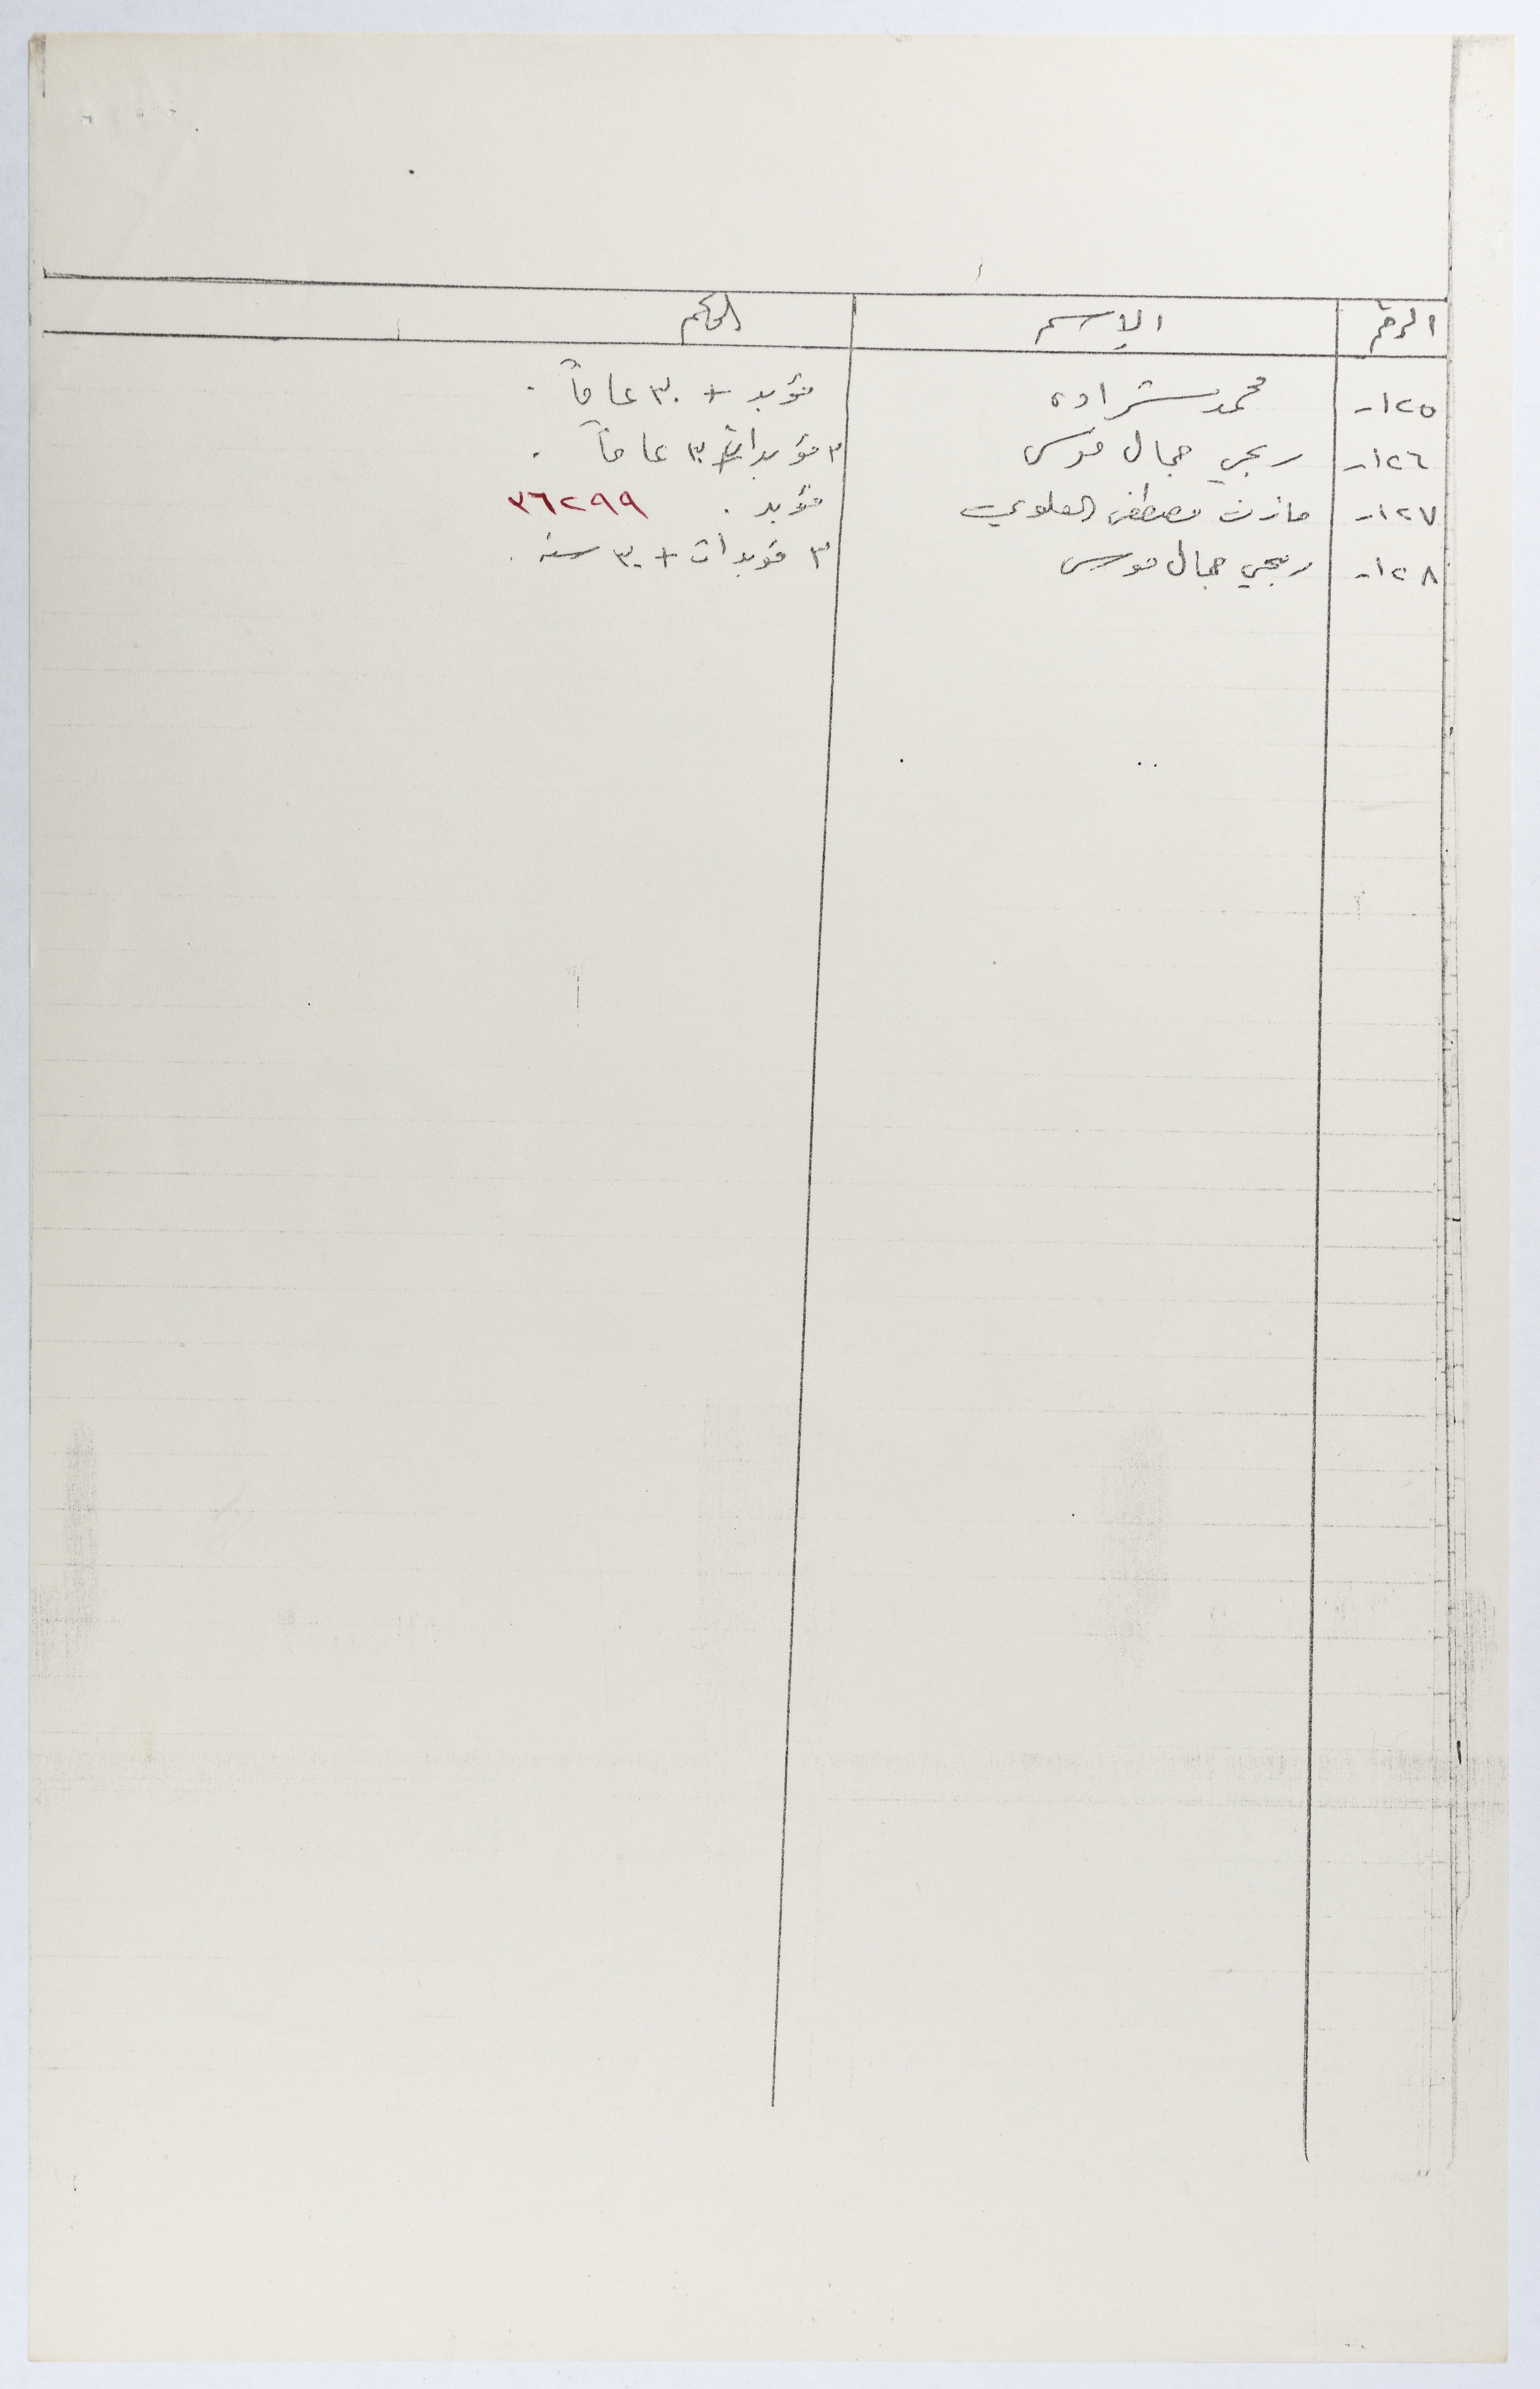 الرقم الإسم الحكم
١٢٥- محمد شراده مؤبد + ٣٠ عاماً .
١٢٦- ربحي جمال موسى ٣ مؤبدات + ٣٠ عاماً .
١٢٧- مازن مصطفى العلوي مؤبد . ٣٦٢٩٩
١٢٨- ربحي جمال موسى ٣ مؤبدات + ٣٠ سنة .